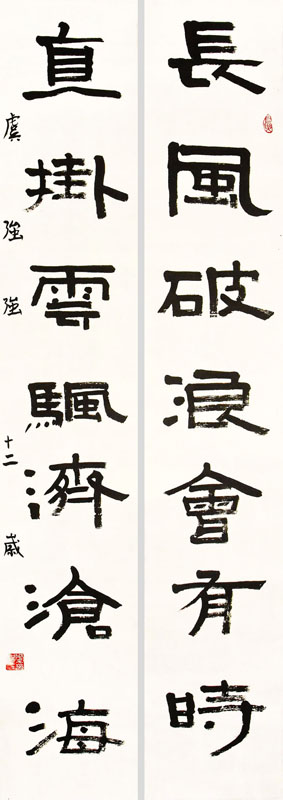 長風破浪會有時
直掛雲颿濟滄海
虞強強 十二歲